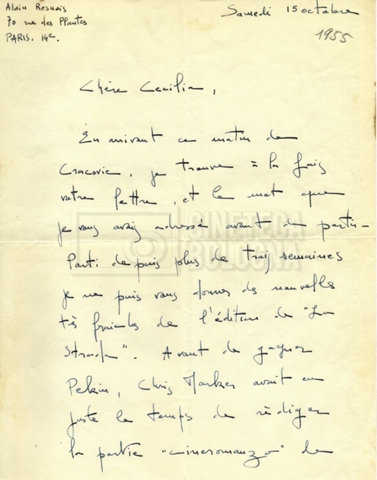 Alain Resnais
70 rue des Plantes
PARIS. 14e.
Samedi 15 octobre
1955
Chère Cecilia,
En arrivant ce matin de
Cracovie, je trouve à la fois
votre lettre, et le mot que
je vous avais adressé avant de partir.
Parti depuis plus de trois semaines
je ne puis vous donner des nouvelles
très fraiches de l'édition de "La
Strada". Avant de gagner
Pekin, Chris Marker avait eu
juste le temps de rédiger
la partie "cineromanzo" de
CINETECA
BOLOGNA